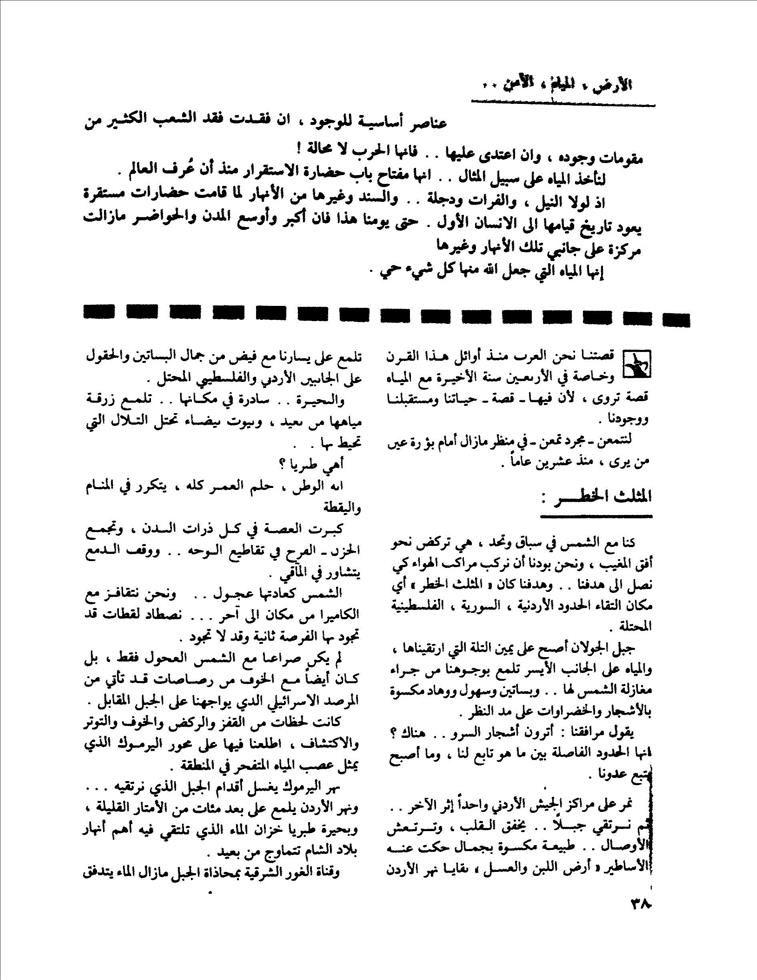 الأرض ، المياه ، الأمن ..
عناصر أساسية للوجود ، ان فقدت فقد الشعب الكثير من
مقومات وجوده ، وان اعتدى عليها .. فانها الحرب لا محالة !
لنأخذ المياه على سبيل المثال .. انها مفتاح باب حضارة الاستقرار منذ أن عُرف العالم .
اذ لولا النيل ، والفرات ودجلة .. والسند وغيرها من الأنهار لما قامت حضارات مستقرة
يعود تاريخ قيامها الى الانسان الأول . حتى يومنا هذا فان أكبر وأوسع المدن والحواضر مازالت
مركزة على جانبي تلك الأنهار وغيرها
إنها المياه التي جعل الله منها كل شيء حي .
قصتنا نحن العرب منذ أوائل هذا القرن
وخاصة في الأربعين سنة الأخيرة مع المياه
قصة تروى ، لأن فيها - قصة - حياتنا ومستقبلنا
ووجودنا .
لنتمعن - مجرد تمعن - في منظر مازال أمام بؤرة عين
من يرى ، منذ عشرين عاماً .
المثلث الخطر :
كنا مع الشمس في سباق وتحد ، هي تركض نحو
أفق المغيب ، ونحن بودنا أن نركب مراكب الهواء كي
نصل الى هدفنا .. وهدفنا كان « المثلث الخطر » أي
مكان التقاء الحدود الأردنية ، السورية ، الفلسطينية
المحتلة .
جبل الجولان أصبح على يمين التلة التي ارتقيناها ،
والمياه على الجانب الأيسر تلمع بوجوهنا من جراء
مغازلة الشمس لها .. وبساتين وسهول ووهاد مكسوة
بالأشجار والخضراوات على مد النظر .
يقول مرافقنا : أترون أشجار السرو .. هناك ؟
انها الحدود الفاصلة بين ما هو تابع لنا ، وما أصبح
يتبع عدونا .
نمر على مراكز الجيش الأردني واحداً إثر الآخر ..
ثم نرتقي جبلاً .. يخفق القلب ، وترتعش
الأوصال .. طبيعة مكسوة بجمال حكت عنه
الأساطير « أرض اللبن والعسل » بقايا نهر الأردن
تلمع على يسارنا مع فيض من جمال البساتين والحقول
على الجانبين الأردني والفلسطيني المحتل .
والبحيرة .. سادرة في مكانها .. تلمع زرقة
مياهها من بعيد ، وبيوت بيضاء تحتل التلال التي
تحيط بها . .
أهي طبريا ؟
انه الوطن ، حلم العمر كله ، يتكرر في المنام
واليقظة
كبرت الغصة في كل ذرات البدن ، وتجمع
الحزن - الفرح في تقاطيع الوجه .. ووقف الدمع
يتشاور في المآقي .
الشمس كعادتها عجول .. ونحن نتقافز مع
الكاميرا من مكان الى آخر ... نصطاد لقطات قد
تجود بها الفرصة ثانية وقد لا تجود .
لم يكن صراعنا مع الشمس العجول فقط ، بل
كان أيضاً مع الخوف من رصاصات قد تأتي من
المرصد الاسرائيلي الذي يواجهنا على الجبل المقابل .
كانت لحظات من القفز والركض والخوف والتوتر
والاكتشاف ، اطلعنا فيها على محور اليرموك الذي
يمثل عصب المياه المتفجر في المنطقة .
نهر اليرموك يغسل أقدام الجبل الذي نرتقيه ...
ونهر الأردن يلمع على بعد مئات من الأمتار القليلة ،
وبحيرة طبريا خزان الماء الذي تلتقي فيه أهم أنهار
بلاد الشام تتماوج من بعيد .
وقناة الغور الشرقية بمحاذاة الجبل مازال الماء يتدفق
٣٨